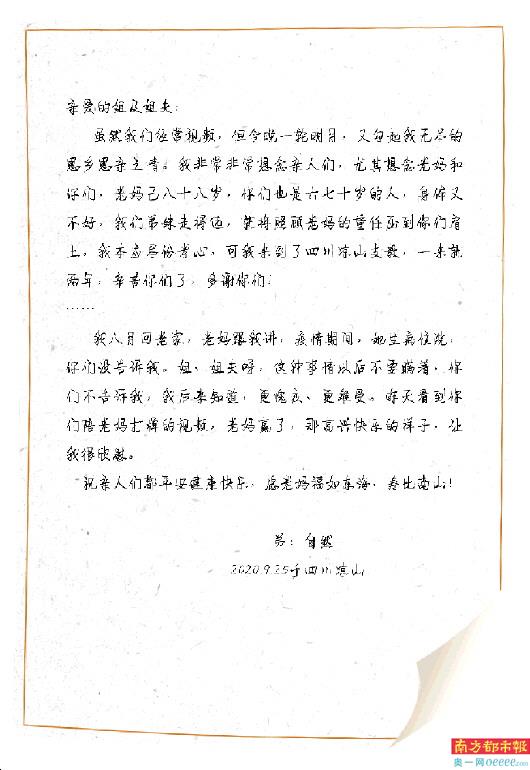 亲爱的姐及姐夫：
虽然我们经常视频，但今晚一轮明月，又勾起我无尽的
思乡思亲之情。我非常非常想念亲人们，尤其想念老妈和
你们，老妈已八十八岁，你们也是六七十岁的人，身体又
不好，我们弟妹走得远，就将照顾老妈的重任压到你们肩
上，我本应尽份孝心，可我来到了四川凉山支教，一来就
两年，辛苦你们了，多谢你们！
……
我八月回老家，老妈跟我讲，疫情期间，她生病住院，
你们没告诉我。姐、姐夫呀，这种事情以后不要瞒着，你
们不告诉我，我后来知道，更愧疚、更难受。昨天看到你
们陪老妈打牌的视频，老妈赢了，那高兴快乐的样子，让
我很欣慰。
祝亲人们都平安健康快乐，愿老妈福如东海，寿比南山！
弟：自然
2020.9.25于四川凉山
南方都市报
奥一网oeeee.com